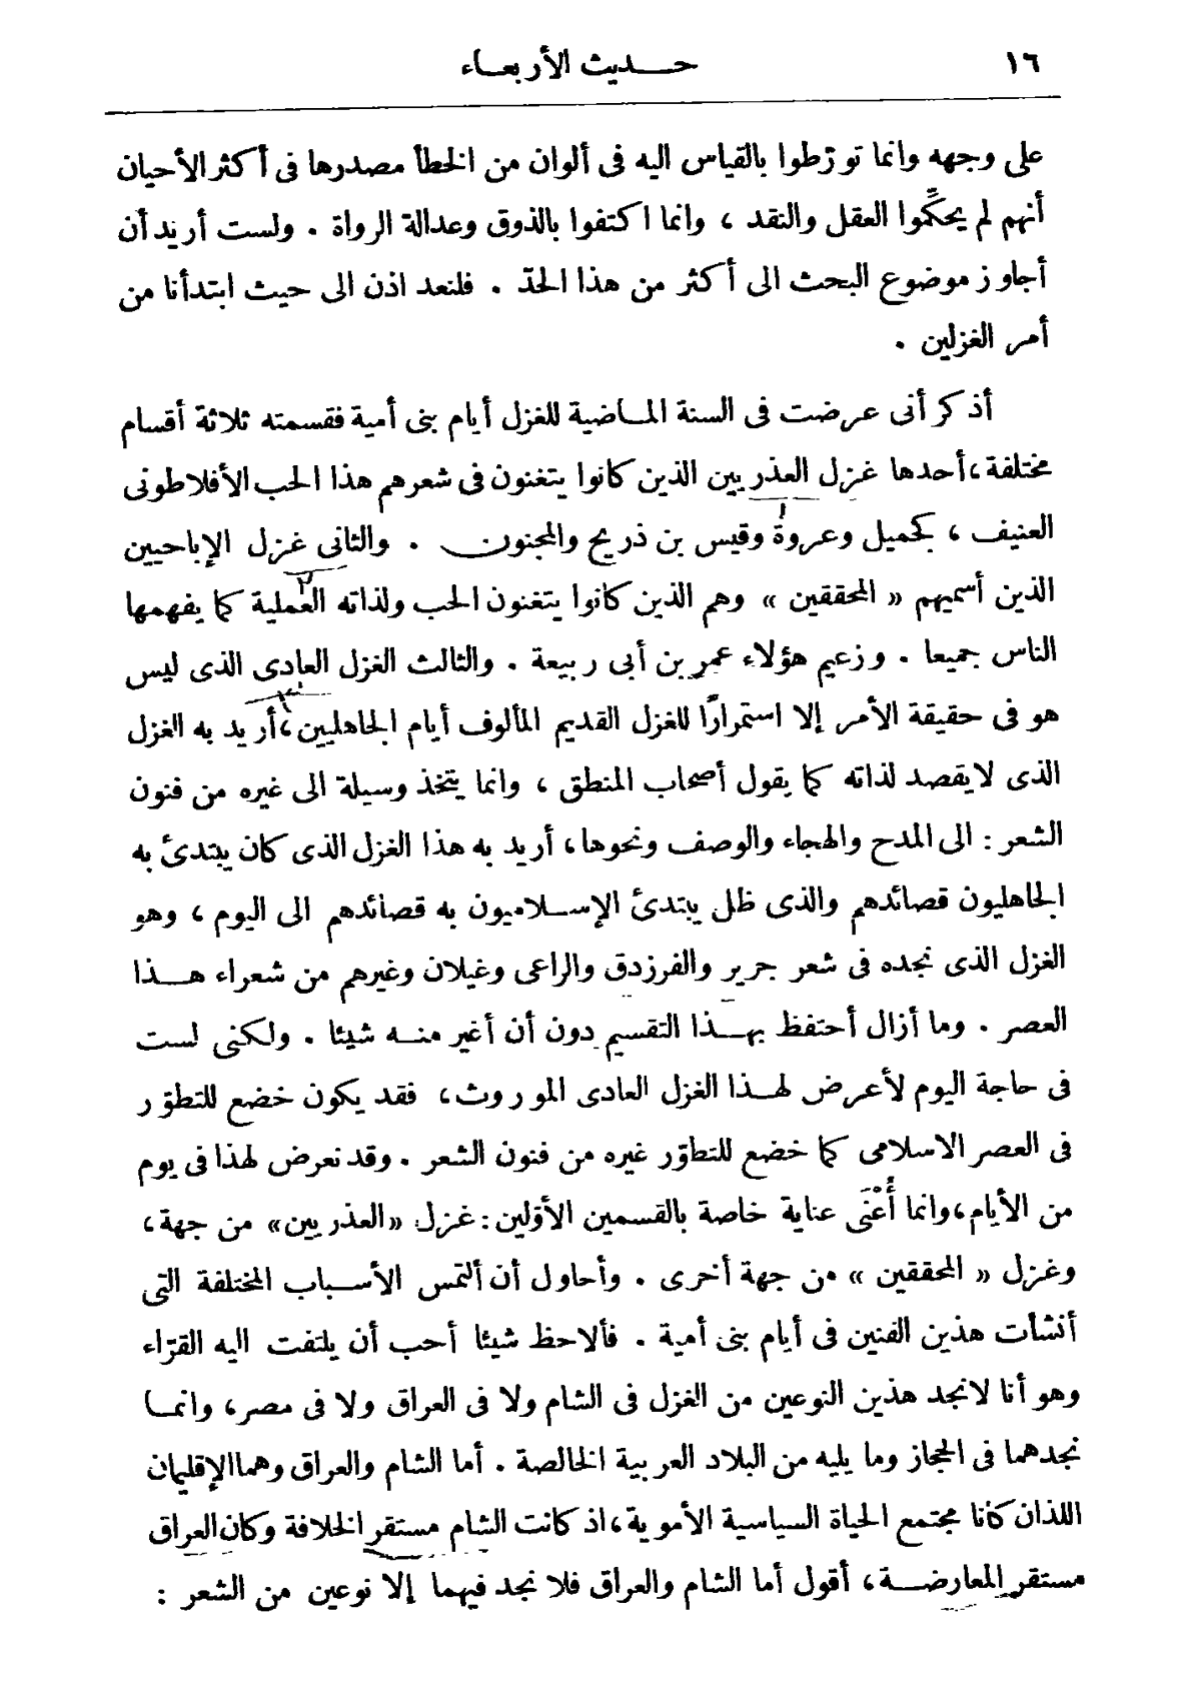 ١٦
حديث الأربعاء
على وجهه وانما تورّطوا بالقياس اليه فى ألوان من الخطأ مصدرها فى أكثر الأحيان
أنهم لم يحكِّموا العقل والنقد ، وانما اكتفوا بالذوق وعدالة الرواة . ولست أريد أن
أجاوز موضوع البحث الى أكثر من هذا الحدّ . فلنعد اذن الى حيث ابتدأنا من
أمر الغزلين .
أذكر أنى عرضت فى السنة الماضية للغزل أيام بنى أمية فقسمته ثلاثة أقسام
مختلفة ، أحدها غزل العذريين الذين كانوا يتغنون فى شعرهم هذا الحب الأفلاطونى
العنيف ، كجميل وعروة وقيس بن ذريح والمجنون . والثانى غزل الإباحيين
الذين أسميهم « المحققين » وهم الذين كانوا يتغنون الحب ولذاته العملية كما يفهمها
الناس جميعا . وزعيم هؤلاء عمر بن أبى ربيعة . والثالث الغزل العادى الذى ليس
هو فى حقيقة الأمر إلا استمرارًا للغزل القديم المألوف أيام الجاهليين ، أريد به الغزل
الذى لا يقصد لذاته كما يقول أصحاب المنطق ، وانما يتخذ وسيلة الى غيره من فنون
الشعر : الى المدح والهجاء والوصف ونحوها ، أريد به هذا الغزل الذى كان يبتدئ به
الجاهليون قصائدهم والذى ظل يبتدئ الإسلاميون به قصائدهم الى اليوم ، وهو
الغزل الذى نجده فى شعر جرير والفرزدق والراعى وغيلان وغيرهم من شعراء هذا
العصر . وما أزال أحتفظ بهذا التقسيم دون أن أغير منه شيئا . ولكنى لست
فى حاجة اليوم لأعرض لهذا الغزل العادى الموروث ، فقد يكون خضع للتطوّر
فى العصر الاسلامى كما خضع للتطوّر غيره من فنون الشعر . وقد نعرض لهذا فى يوم
من الأيام ، وانما أُعْنَى عناية خاصة بالقسمين الأوّلين : غزل «العذريين» من جهة ،
وغزل « المحققين » من جهة أخرى . وأحاول أن ألتمس الأسباب المختلفة التى
أنشأت هذين الفنين فى أيام بنى أمية . فألاحظ شيئا أحب أن يلتفت اليه القرّاء
وهو أنا لا نجد هذين النوعين من الغزل فى الشام ولا فى العراق ولا فى مصر ، وانما
نجدهما فى الحجاز وما يليه من البلاد العربية الخالصة . أما الشام والعراق وهما الإقليمان
اللذان كانا مجتمع الحياة السياسية الأموية ، اذ كانت الشام مستقر الخلافة وكان العراق
مستقر المعارضة ، أقول أما الشام والعراق فلا نجد فيهما إلا نوعين من الشعر :